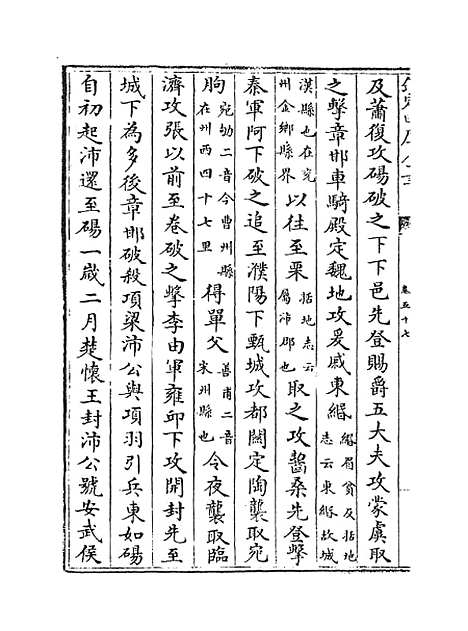 欽定四庫全書
卷五十七
及蕭復攻碭破之下下邑先登賜爵五大夫攻蒙虞取
之擊章邯車騎殿定魏地攻爰戚東緡緡眉貧反括地志云東緡故城
漢縣也在兗州金鄉縣界以往至栗括地志云屬沛郡也取之攻齧桑先登擊
秦軍阿下破之追至濮陽下甄城攻都關定陶襲取宛
朐宛朐二音今曹州縣在州西四十七里得單父善甫二音宋州縣也令夜襲取臨
濟攻張以前至卷破之擊李由軍雍丘下攻開封先至
城下為多後章邯破殺項梁沛公與項羽引兵東如碭
自初起沛還至碭一歲二月楚懷王封沛公號安武侯